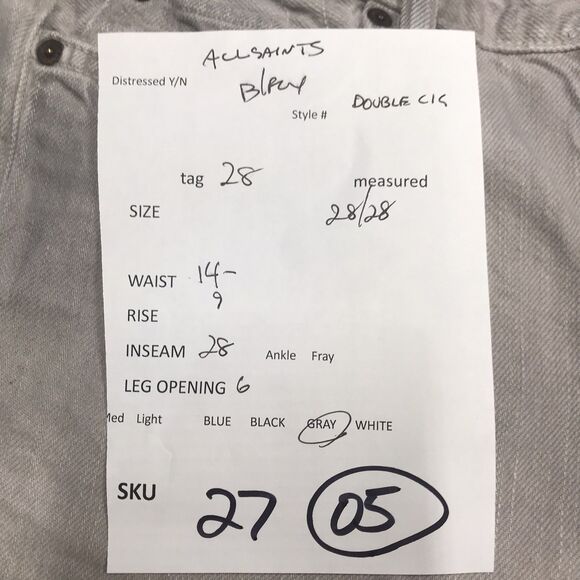 ALLSAINTS
Distressed Y/N
Style # DOUBLE CIG
tag 28 measured
SIZE 28/28
WAIST 14-
9
RISE
INSEAM 28 Ankle Fray
LEG OPENING 6
Med Light BLUE BLACK GRAY WHITE
SKU 27 05